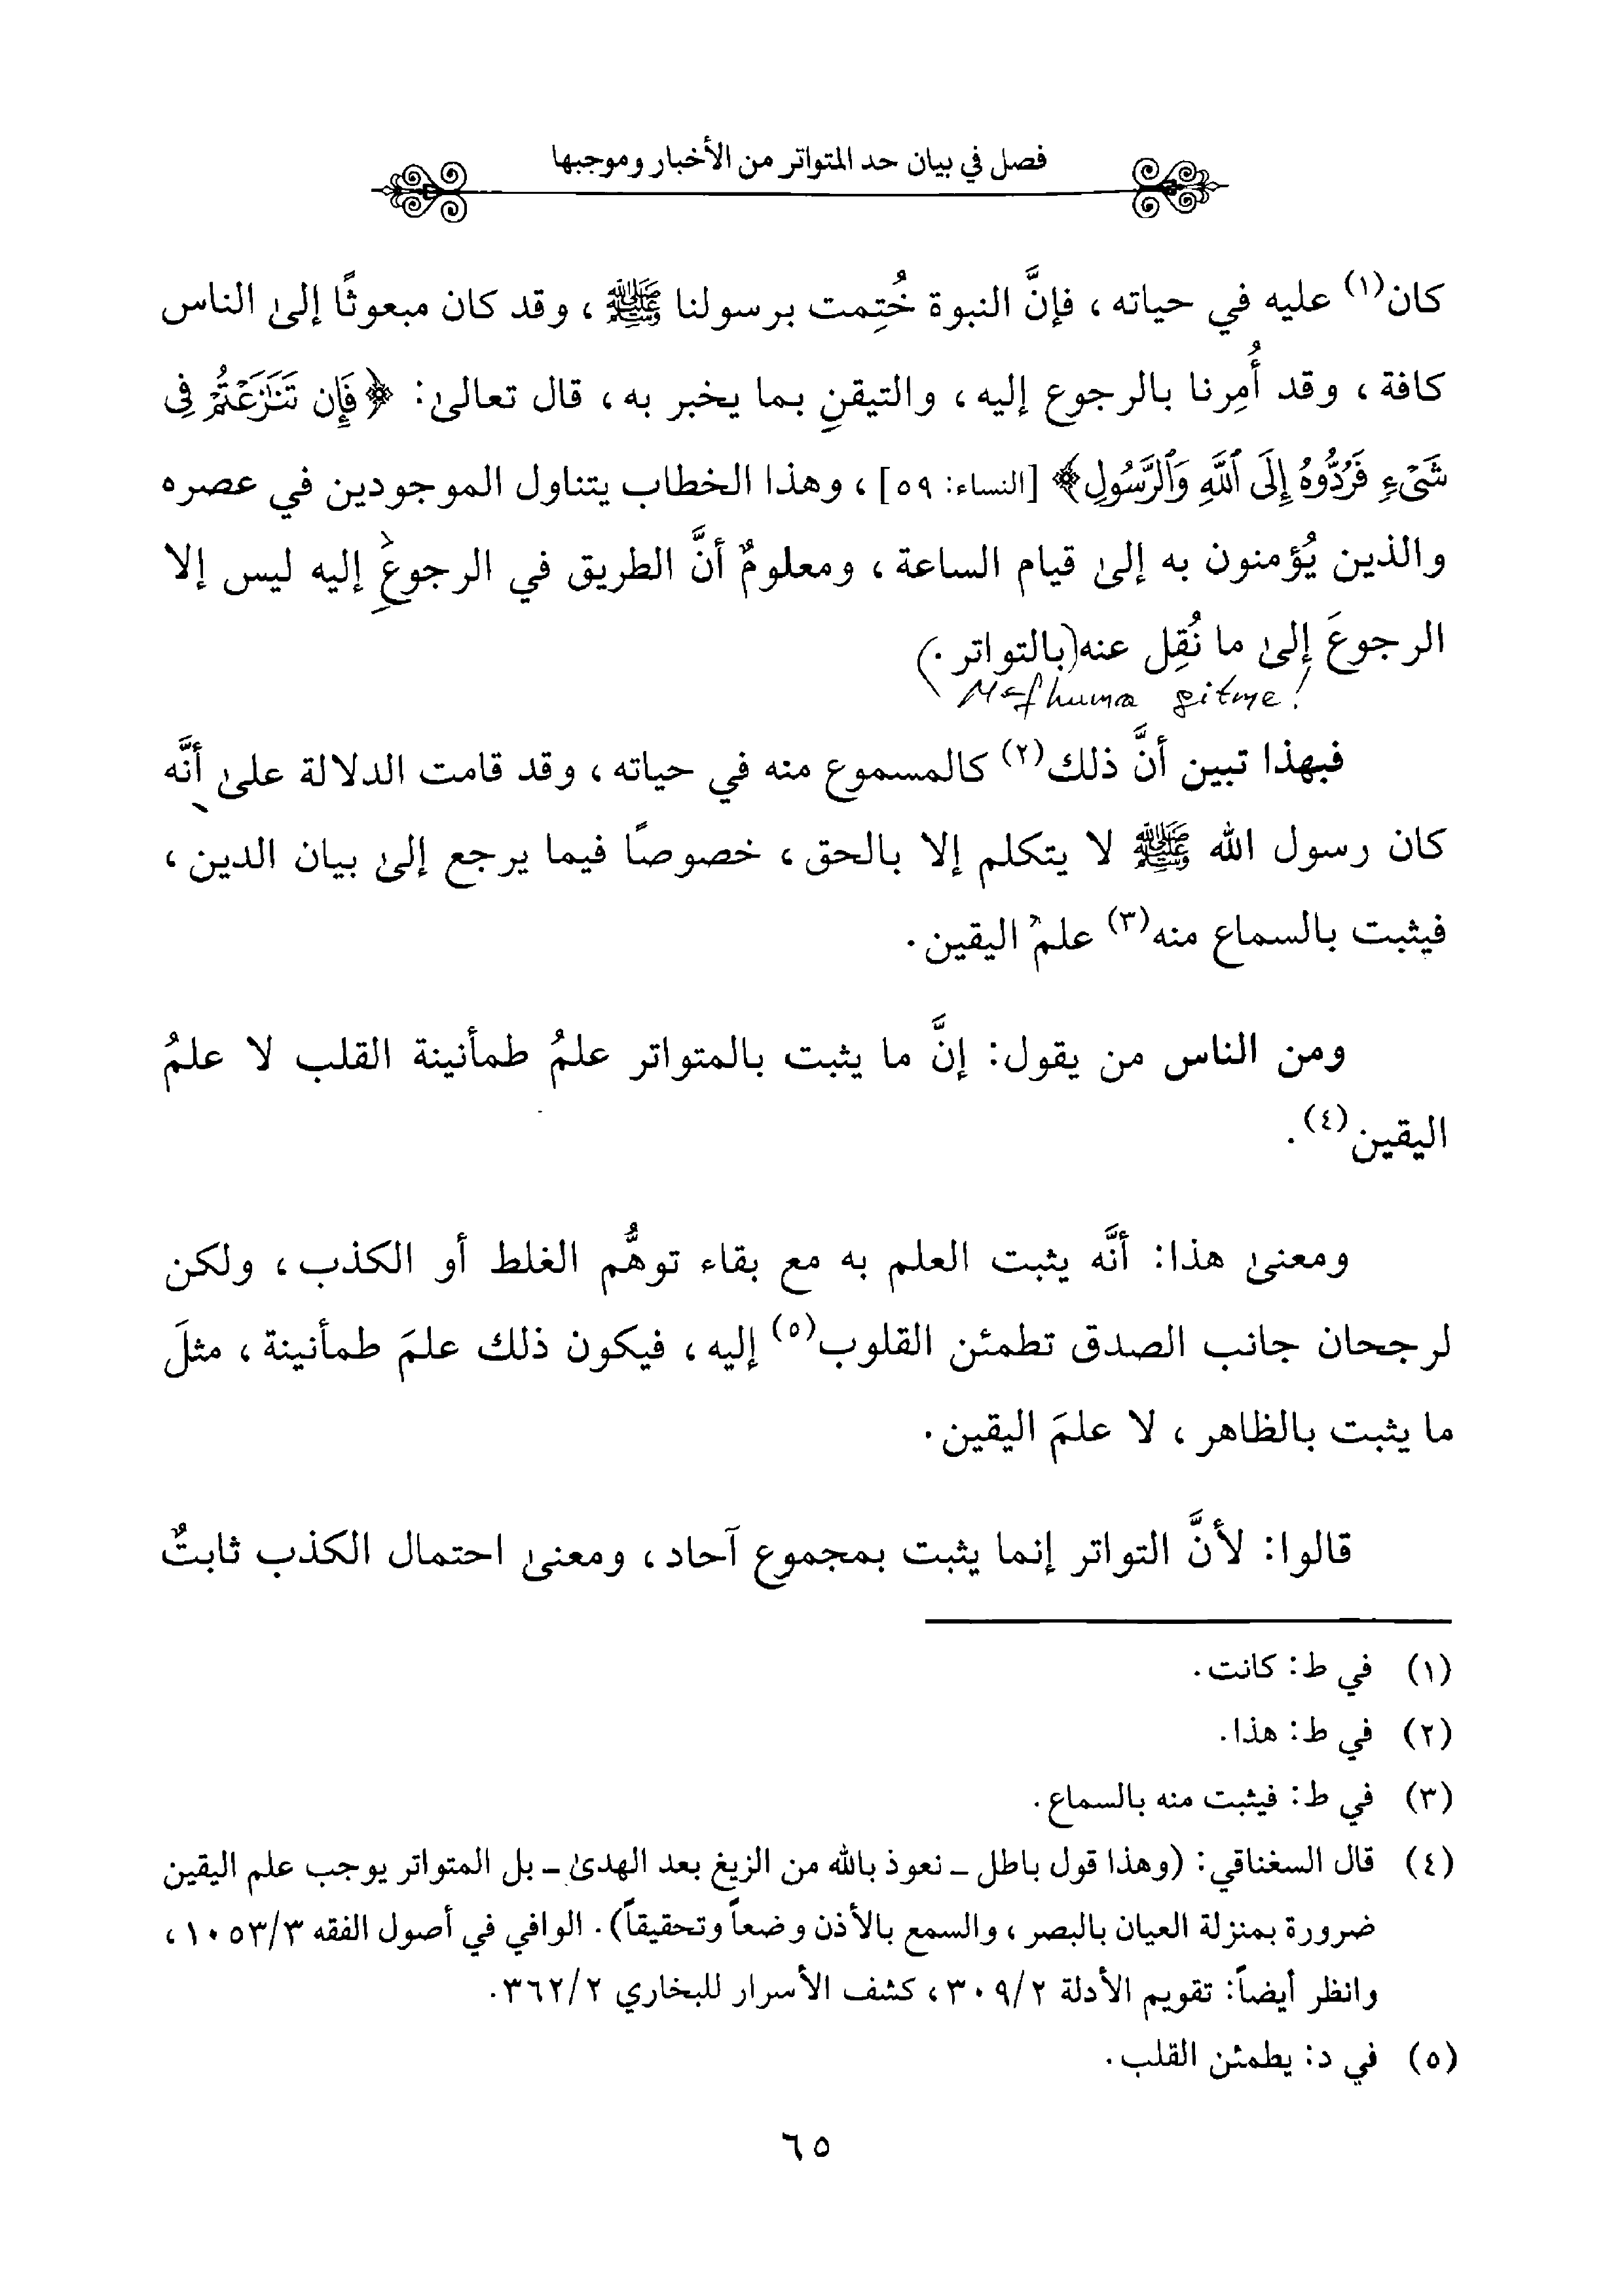 فصل في بيان حد المتواتر من الأخبار وموجبها
كان(١) عليه في حياته، فإنَّ النبوة خُتِمت برسولنا ﷺ، وقد كان مبعوثًا إلىٰ الناس
كافة، وقد أُمِرنا بالرجوع إليه، والتيقنِ بما يخبر به، قال تعالىٰ: ﴿فَإِن تَنَٰزَعْتُمْ فِى
شَىْءٍ فَرُدُّوهُ إِلَى ٱللَّهِ وَٱلرَّسُولِ﴾ [النساء: ٥٩]، وهذا الخطاب يتناول الموجودين في عصره
والذين يُؤمنون به إلىٰ قيام الساعة، ومعلومٌ أنَّ الطريق في الرجوعِ إليه ليس إلا
الرجوعَ إلىٰ ما نُقِل عنه (بالتواتر.)
Mefhuma gitme!
فبهذا تبين أنَّ ذلك(٢) كالمسموع منه في حياته، وقد قامت الدلالة علىٰ أنَّه
كان رسول الله ﷺ لا يتكلم إلا بالحق، خصوصًا فيما يرجع إلىٰ بيان الدين،
فيثبت بالسماع منه(٣) علمُ اليقين.
ومن الناس من يقول: إنَّ ما يثبت بالمتواتر علمُ طمأنينة القلب لا علمُ
اليقين(٤).
ومعنىٰ هذا: أنَّه يثبت العلم به مع بقاء توهُّم الغلط أو الكذب، ولكن
لرجحان جانب الصدق تطمئن القلوب(٥) إليه، فيكون ذلك علمَ طمأنينة، مثلَ
ما يثبت بالظاهر، لا علمَ اليقين.
قالوا: لأنَّ التواتر إنما يثبت بمجموع آحاد، ومعنىٰ احتمال الكذب ثابتٌ
(١) في ط: كانت.
(٢) في ط: هذا.
(٣) في ط: فيثبت منه بالسماع.
(٤) قال السغناقي: (وهذا قول باطل ـ نعوذ بالله من الزيغ بعد الهدىٰ ـ بل المتواتر يوجب علم اليقين
ضرورة بمنزلة العيان بالبصر، والسمع بالأذن وضعاً وتحقيقاً). الوافي في أصول الفقه ١٠٥٣/٣،
وانظر أيضاً: تقويم الأدلة ٣٠٩/٢، كشف الأسرار للبخاري ٣٦٢/٢.
(٥) في د: يطمئن القلب.
٦٥